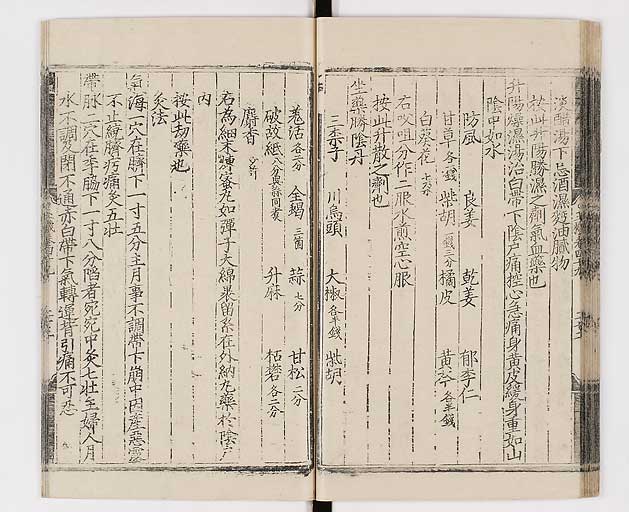 淡醋湯下忌酒濕麪油膩物
按此升陽勝濕之劑氣血藥也
升陽燥濕湯治白帶下陰戶痛控心急痛身黃皮緩身重如山
陰中如水
防風 良姜 乾姜 郁李仁
甘草各一錢 柴胡 橘皮 黃芩各半錢
白葵花七朶
右㕮咀分作二服水煎空心服
按此升散之劑也
坐藥勝陰丹
三柰子 川烏頭 大椒各半錢 柴胡
羌活各二分 全蝎三箇 蒜七分 甘松二分
破故紙八分與蒜同煮 升麻 枯礬各二分
麝香少許
右為細末煉蜜丸如彈子大綿裹留系在外納丸藥於陰戶
內
按此刼藥也
灸法
氣海一穴在臍下一寸五分主月事不調帶下崩中因產惡露
不止繞臍㽲痛灸五壯
帶脉二穴在季脇下一寸八分陷者宛宛中灸七壯主婦人月
水不調及閉不通赤白帶下氣轉運背引痛不可忍